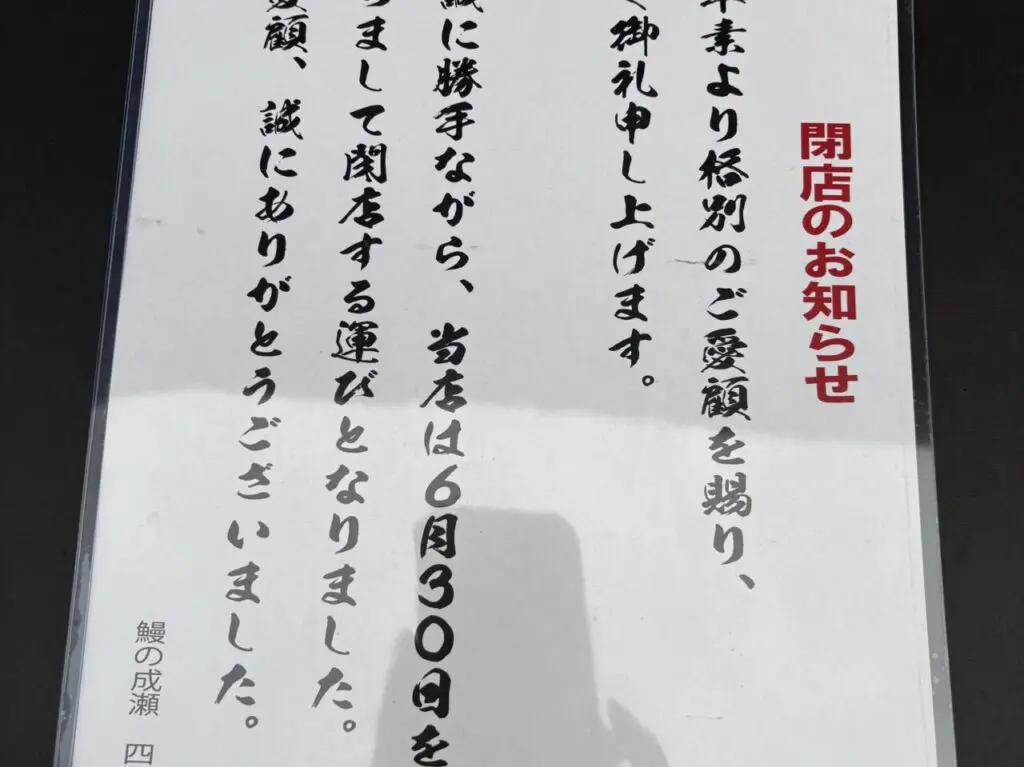 閉店のお知らせ
素より格別のご愛顧を賜り、
御礼申し上げます。
誠に勝手ながら、当店は6月30日を
まして閉店する運びとなりました。
愛顧、誠にありがとうございました。
鰻の成瀬 四